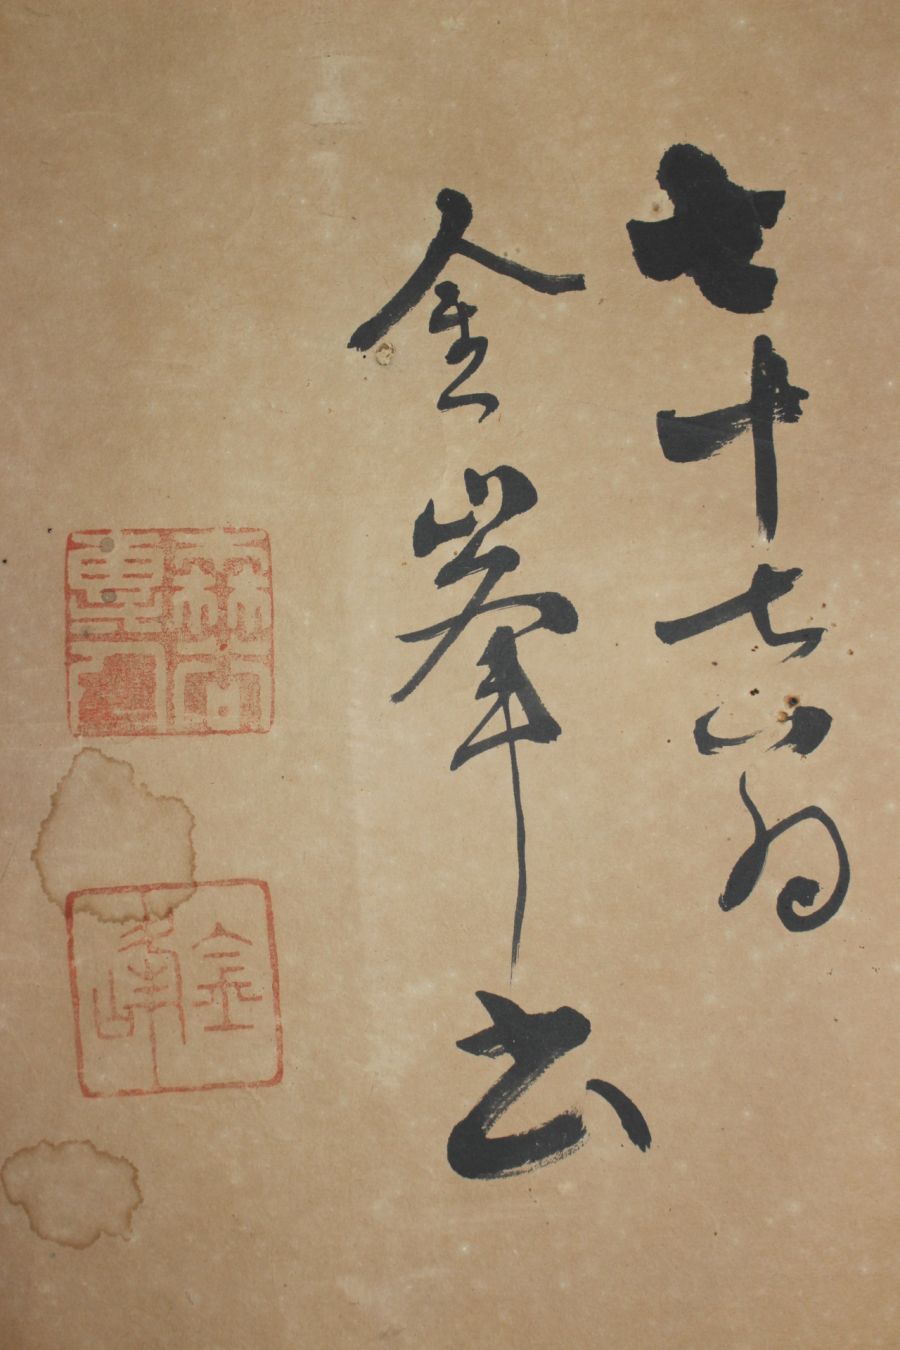 七十七翁
金峯書
金峰